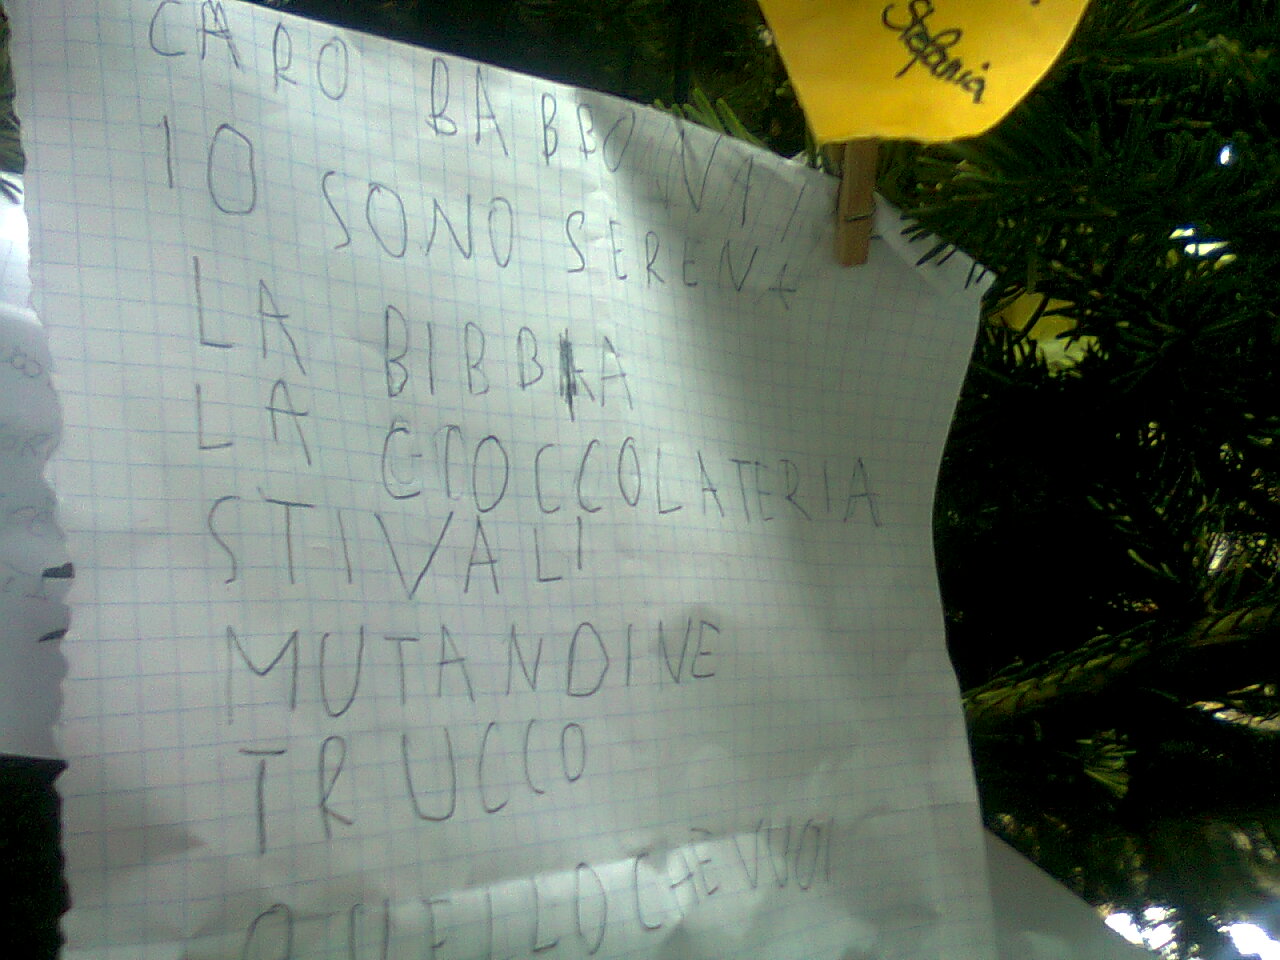 Stefania
CARO BABBO NA
IO SONO SERENA
LA BIBBIA
LA CIOCCOLATERIA
STIVALI
MUTANDINE
TRUCCO
QUELLO CHE VUOI